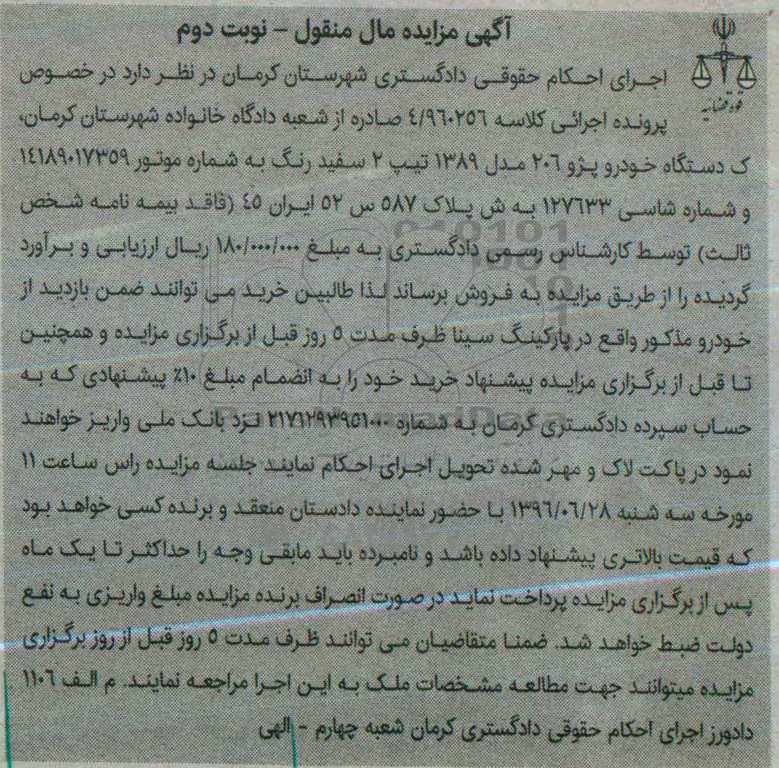 آگهی مزایده مال منقول – نوبت دوم
قوه قضائیه
اجرای احکام حقوقی دادگستری شهرستان کرمان در نظر دارد در خصوص
پرونده اجرائی کلاسه ٤/٩٦٠٢٥٦ صادره از شعبه دادگاه خانواده شهرستان کرمان،
ک دستگاه خودرو پژو ٢٠٦ مدل ١٣٨٩ تیپ ٢ سفید رنگ به شماره موتور ١٤١٨٩٠١٧٣٥٩
و شماره شاسی ١٢٧٦٣٣ به ش پلاک ٥٨٧ س ٥٢ ایران ٤٥ (فاقد بیمه نامه شخص
ثالث) توسط کارشناس رسمی دادگستری به مبلغ ١٨٠/٠٠٠/٠٠٠ ریال ارزیابی و برآورد
گردیده را از طریق مزایده به فروش برساند لذا طالبین خرید می توانند ضمن بازدید از
خودرو مذکور واقع در پارکینگ سینا ظرف مدت ٥ روز قبل از برگزاری مزایده و همچنین
تا قبل از برگزاری مزایده پیشنهاد خرید خود را به انضمام مبلغ ١٠٪ پیشنهادی که به
حساب سپرده دادگستری کرمان به شماره ٢١٧١٢٩٣٩٥١٠٠٠ نزد بانک ملی واریز خواهند
نمود در پاکت لاک و مهر شده تحویل اجرای احکام نمایند جلسه مزایده راس ساعت ١١
مورخه سه شنبه ١٣٩٦/٠٦/٢٨ با حضور نماینده دادستان منعقد و برنده کسی خواهد بود
که قیمت بالاتری پیشنهاد داده باشد و نامبرده باید مابقی وجه را حداکثر تا یک ماه
پس از برگزاری مزایده پرداخت نماید در صورت انصراف برنده مزایده مبلغ واریزی به نفع
دولت ضبط خواهد شد. ضمنا متقاضیان می توانند ظرف مدت ٥ روز قبل از روز برگزاری
مزایده میتوانند جهت مطالعه مشخصات ملک به این اجرا مراجعه نمایند. م الف ١١٠٦
دادورز اجرای احکام حقوقی دادگستری کرمان شعبه چهارم – الهی